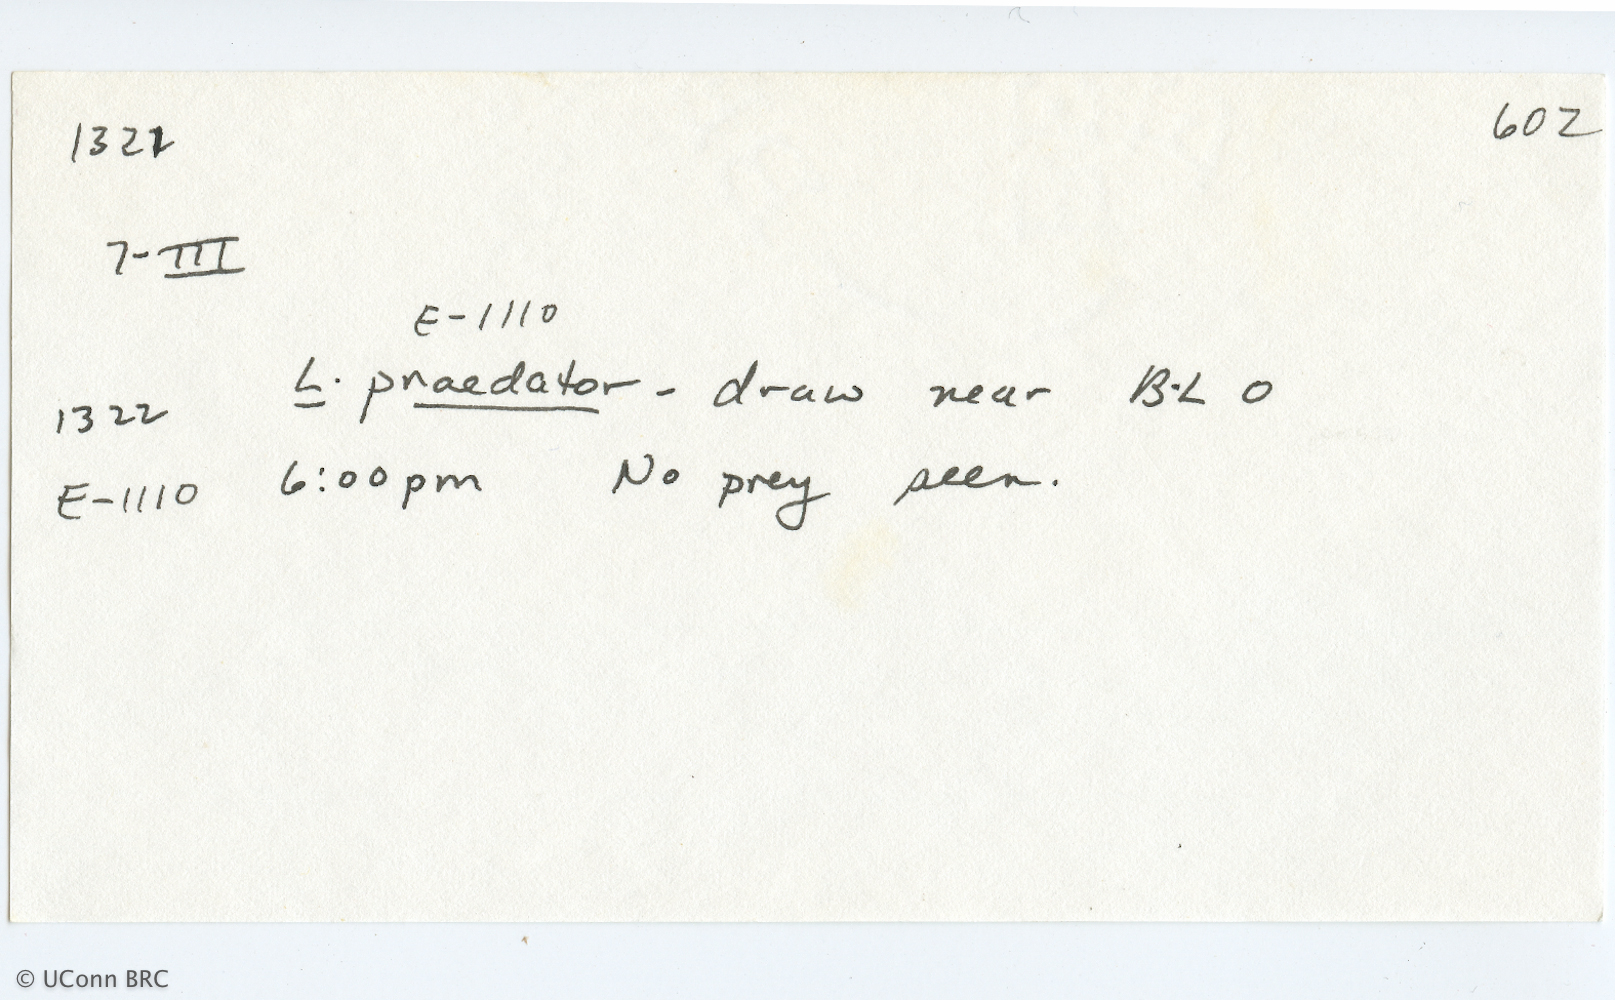 1321
602
7-III
E-1110
L. praedator - draw near B-L 0
1322
E-1110
6:00pm No prey seen.
© UConn BRC